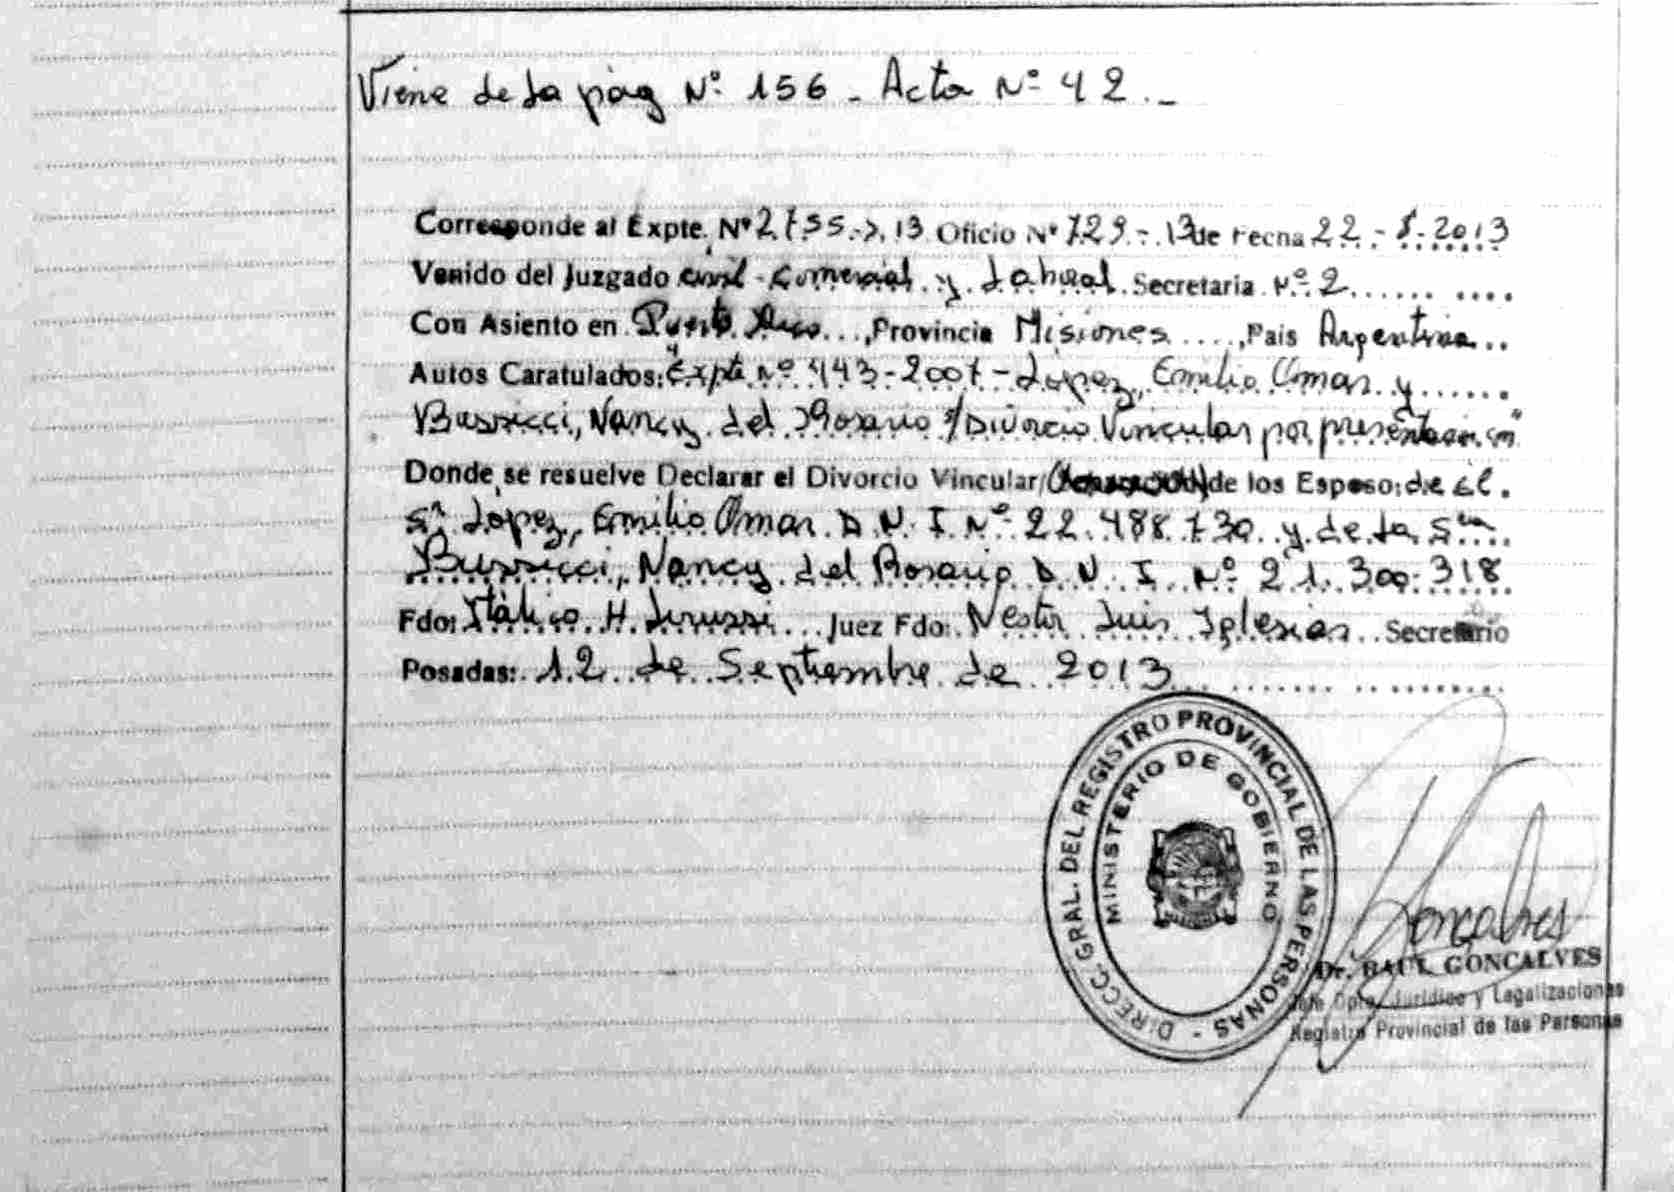 Viene de la pág Nº 156 - Acta Nº 42.-
Corresponde al Expte. Nº 2755.-L.13 Oficio Nº 729.-.13 de Fecha 22.-8-2013
Venido del Juzgado Civil-Comercial y Laboral. Secretaria Nº 2
Con Asiento en Puerto Rico..., Provincia Misiones ...., Pais Argentina..
Autos Caratulados: "Expte Nº 443-2007-López, Emilio Omar y
Bussicci, Nancy del Rosario s/Divorcio Vincular por presentación"
Donde se resuelve Declarar el Divorcio Vincular/ de los Esposo: de el.
Sr Lopez, Emilio Omar D.N.I. Nº 22.488.730. y de la Sra
Bussicci, Nancy del Rosario D.N.I. Nº 21.300.318
Fdo: Itálico H. ... Juez Fdo: Nestor Luis Iglesias.. Secretario
Posadas: 12 de Septiembre de 2013
DIRECC. GRAL. DEL REGISTRO PROVINCIAL DE LAS PERSONAS -
MINISTERIO DE GOBIERNO
Goncalves
Dr. RAUL GONCALVES
Jefe Dpto. Jurídico y Legalizaciones
Registro Provincial de las Personas